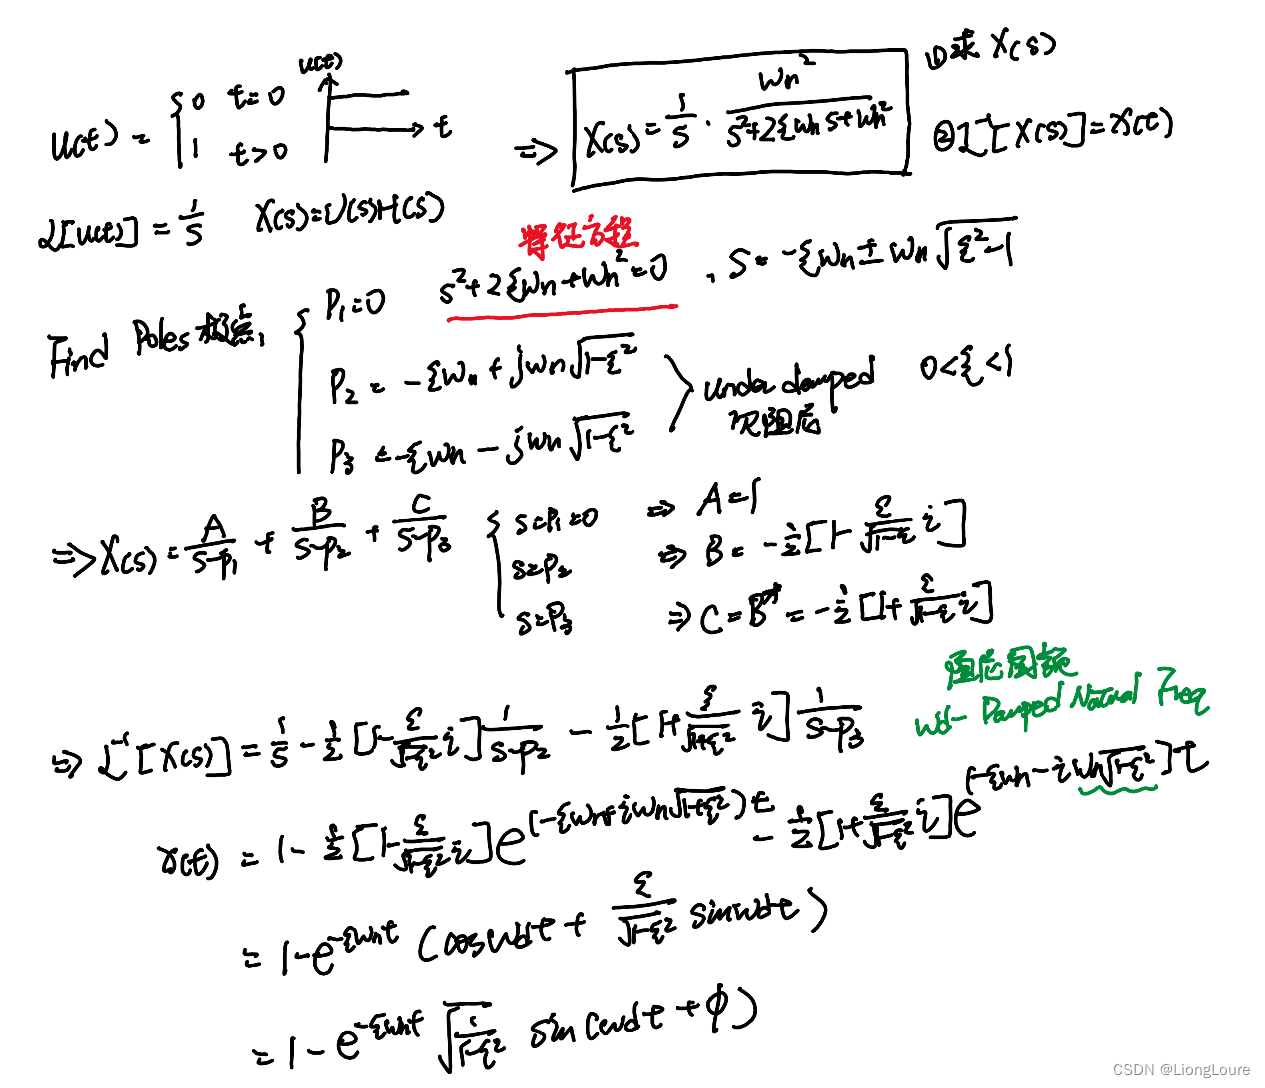 u(t) = { 0 t=0
1 t>0
u(t)
t
⇒ X(s) = 1/s · ωn²/(s²+2ξωn s+ωn²)
① 求 X(s)
② L⁻¹[X(s)] = x(t)
L[u(t)] = 1/s X(s)=U(s)H(s)
特征方程
Find Poles 极点, { P₁=0 s²+2ξωn+ωn²=0 , S = -ξωn ± ωn√(ξ²-1)
P₂ = -ξωn + jωn√(1-ξ²)
P₃ = -ξωn - jωn√(1-ξ²)
underdamped 0<ξ<1
欠阻尼
⇒ X(s) = A/(s-p₁) + B/(s-p₂) + C/(s-p₃) { s=P₁=0 ⇒ A=1
s=P₂ ⇒ B = -1/2[1-ξ/√(1-ξ) i]
s=P₃ ⇒ C=B* = -1/2[1+ξ/√(1-ξ) i]
阻尼固频
ωd- Damped Natural Freq
⇒ L⁻¹[X(s)] = 1/s - 1/2[1-ξ/√(1-ξ²) i] 1/(s-p₂) - 1/2[1+ξ/√(1+ξ²) i] 1/(s-p₃)
x(t) = 1 - 1/2[1-ξ/√(1-ξ²) i]e^(-ξωn+iωn√(1-ξ²))t - 1/2[1+ξ/√(1-ξ²) i]e^[-ξωn-iωn√(1-ξ²)]t
= 1-e^(-ξωnt) (cosωdt + ξ/√(1-ξ²) sinωdt)
= 1 - e^(-ξωnt) √(1/(1-ξ²)) sin(ωdt+φ)
CSDN @LiongLoure